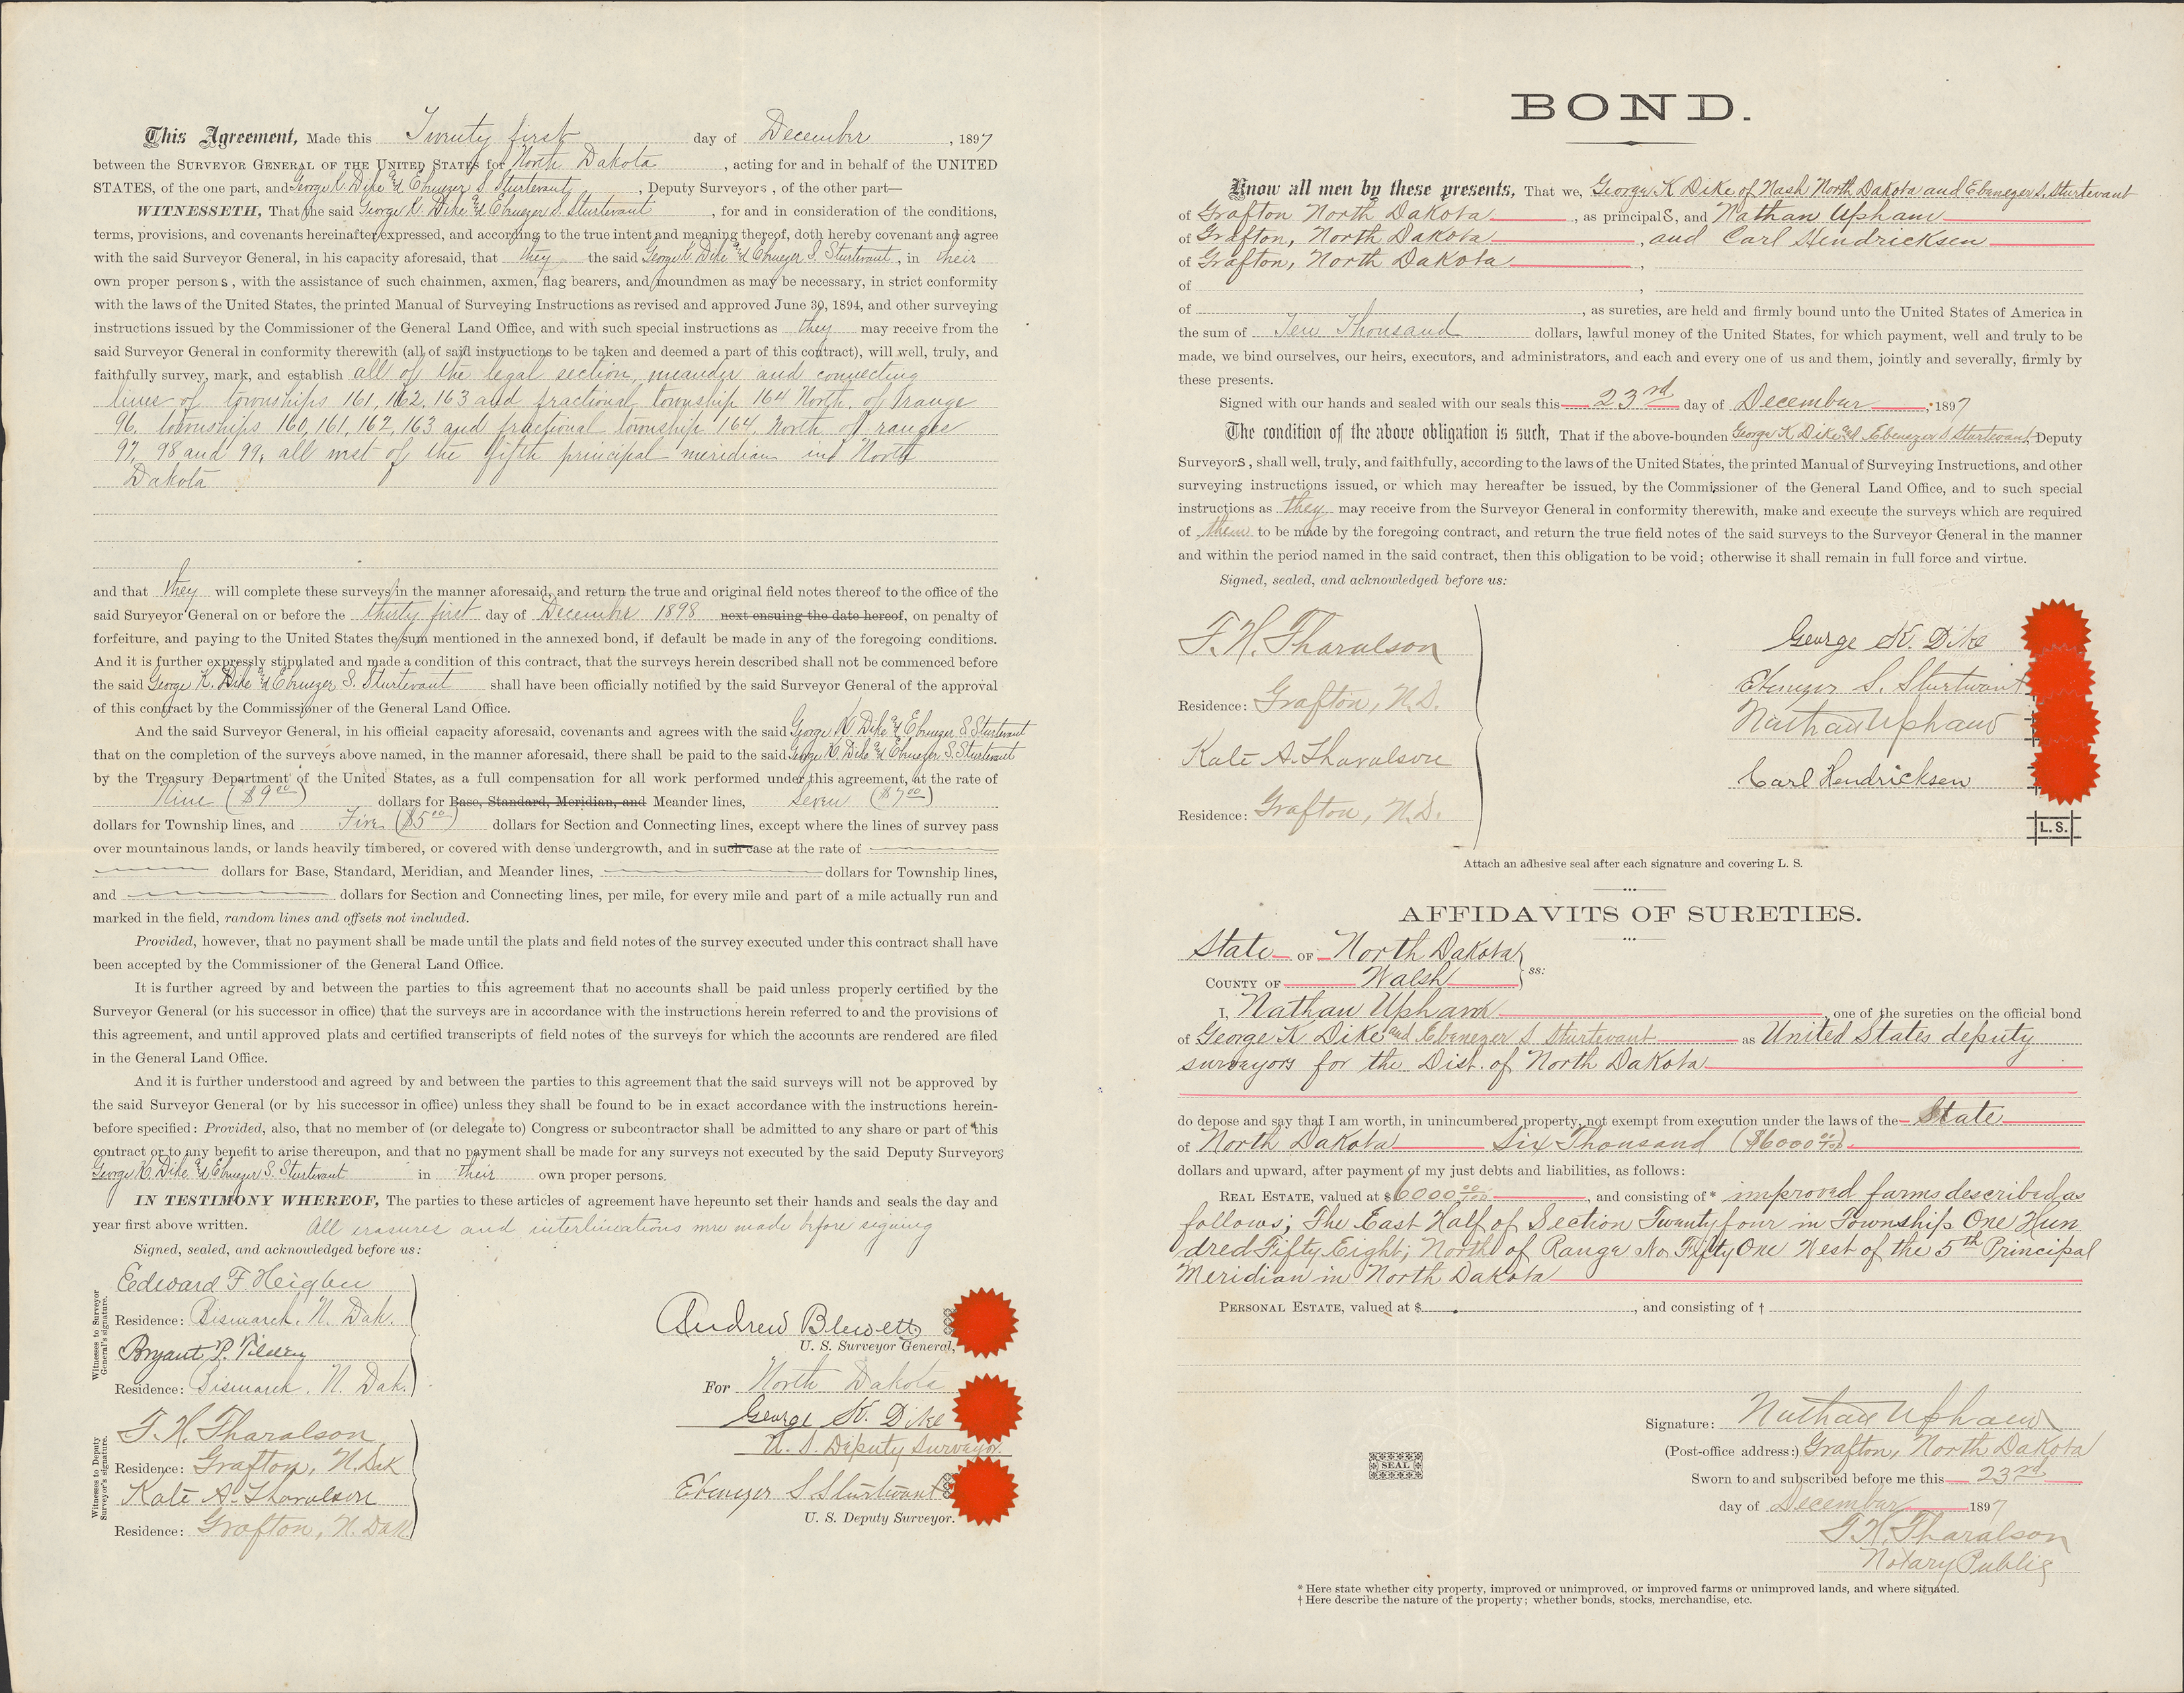 This Agreement, Made this Twenty first day of December, 1897
between the SURVEYOR GENERAL OF THE UNITED STATES for North Dakota, acting for and in behalf of the UNITED
STATES, of the one part, and George K. Dike and Ebenezer S. Sturtevant, Deputy Surveyors, of the other part—
WITNESSETH, That the said George K. Dike and Ebenezer S. Sturtevant, for and in consideration of the conditions,
terms, provisions, and covenants hereinafter expressed, and according to the true intent and meaning thereof, doth hereby covenant and agree
with the said Surveyor General, in his capacity aforesaid, that they the said George K. Dike and Ebenezer S. Sturtevant, in their
own proper persons, with the assistance of such chainmen, axmen, flag bearers, and moundmen as may be necessary, in strict conformity
with the laws of the United States, the printed Manual of Surveying Instructions as revised and approved June 30, 1894, and other surveying
instructions issued by the Commissioner of the General Land Office, and with such special instructions as they may receive from the
said Surveyor General in conformity therewith (all of said instructions to be taken and deemed a part of this contract), will well, truly, and
faithfully survey, mark, and establish all of the legal section, meander and connecting
lines of townships 161, 162, 163 and fractional township 164 North, of range
96, townships 160, 161, 162, 163 and fractional township 164, North of ranges
97, 98 and 99, all west of the fifth principal meridian in North
Dakota
and that they will complete these surveys in the manner aforesaid, and return the true and original field notes thereof to the office of the
said Surveyor General on or before the thirty first day of December 1898 next ensuing the date hereof, on penalty of
forfeiture, and paying to the United States the sum mentioned in the annexed bond, if default be made in any of the foregoing conditions.
And it is further expressly stipulated and made a condition of this contract, that the surveys herein described shall not be commenced before
the said George K. Dike and Ebenezer S. Sturtevant shall have been officially notified by the said Surveyor General of the approval
of this contract by the Commissioner of the General Land Office.
And the said Surveyor General, in his official capacity aforesaid, covenants and agrees with the said George K. Dike and Ebenezer S. Sturtevant
that on the completion of the surveys above named, in the manner aforesaid, there shall be paid to the said George K. Dike and Ebenezer S. Sturtevant
by the Treasury Department of the United States, as a full compensation for all work performed under this agreement, at the rate of
Nine ($9.00) dollars for Base, Standard, Meridian, and Meander lines, Seven ($7.00)
dollars for Township lines, and Five ($5.00) dollars for Section and Connecting lines, except where the lines of survey pass
over mountainous lands, or lands heavily timbered, or covered with dense undergrowth, and in such case at the rate of
dollars for Base, Standard, Meridian, and Meander lines, dollars for Township lines,
and dollars for Section and Connecting lines, per mile, for every mile and part of a mile actually run and
marked in the field, random lines and offsets not included.
Provided, however, that no payment shall be made until the plats and field notes of the survey executed under this contract shall have
been accepted by the Commissioner of the General Land Office.
It is further agreed by and between the parties to this agreement that no accounts shall be paid unless properly certified by the
Surveyor General (or his successor in office) that the surveys are in accordance with the instructions herein referred to and the provisions of
this agreement, and until approved plats and certified transcripts of field notes of the surveys for which the accounts are rendered are filed
in the General Land Office.
And it is further understood and agreed by and between the parties to this agreement that the said surveys will not be approved by
the said Surveyor General (or by his successor in office) unless they shall be found to be in exact accordance with the instructions herein-
before specified: Provided, also, that no member of (or delegate to) Congress or subcontractor shall be admitted to any share or part of this
contract or to any benefit to arise thereupon, and that no payment shall be made for any surveys not executed by the said Deputy Surveyors
George K. Dike and Ebenezer S. Sturtevant in their own proper persons.
IN TESTIMONY WHEREOF, The parties to these articles of agreement have hereunto set their hands and seals the day and
year first above written. All erasures and interlineations were made before signing
Signed, sealed, and acknowledged before us:
Witnesses to Surveyor General's signature.
Edward F. Heigbee
Residence: Bismarck, N. Dak.
Bryant P. Tilden
Residence: Bismarck, N. Dak.
Witnesses to Deputy Surveyor's signature.
T. H. Tharalson
Residence: Grafton, N. Dak
Kate A. Tharalson
Residence: Grafton, N. Dak
Andrew Blewett
U. S. Surveyor General,
For North Dakota
George K. Dike
U. S. Deputy Surveyor.
Ebenezer S Sturtevant
U. S. Deputy Surveyor.
BOND.
Know all men by these presents, That we, George K Dike of Nash North Dakota and Ebenezer S. Sturtevant
of Grafton North Dakota, as principals, and Nathan Upham
of Grafton, North Dakota, and Carl Hendricksen
of Grafton, North Dakota,
of
of , as sureties, are held and firmly bound unto the United States of America in
the sum of Ten Thousand dollars, lawful money of the United States, for which payment, well and truly to be
made, we bind ourselves, our heirs, executors, and administrators, and each and every one of us and them, jointly and severally, firmly by
these presents.
Signed with our hands and sealed with our seals this 23rd day of December, 1897
The condition of the above obligation is such, That if the above-bounden George K Dike and Ebenezer S Sturtevant, Deputy
Surveyors, shall well, truly, and faithfully, according to the laws of the United States, the printed Manual of Surveying Instructions, and other
surveying instructions issued, or which may hereafter be issued, by the Commissioner of the General Land Office, and to such special
instructions as they may receive from the Surveyor General in conformity therewith, make and execute the surveys which are required
of them to be made by the foregoing contract, and return the true field notes of the said surveys to the Surveyor General in the manner
and within the period named in the said contract, then this obligation to be void; otherwise it shall remain in full force and virtue.
Signed, sealed, and acknowledged before us:
T. H. Tharalson
Residence: Grafton, N.D.
Kate A. Tharalson
Residence: Grafton, N.D.
George K. Dike
Ebenezer S. Sturtevant
Nathan Upham
Carl Hendricksen
L. S.
Attach an adhesive seal after each signature and covering L. S.
AFFIDAVITS OF SURETIES.
State OF North Dakota
COUNTY OF Walsh ss:
I, Nathan Upham, one of the sureties on the official bond
of George K Dike and Ebenezer S Sturtevant as United States deputy
surveyors for the Dist. of North Dakota
do depose and say that I am worth, in unincumbered property, not exempt from execution under the laws of the State
of North Dakota Six Thousand ($6000 00/100)
dollars and upward, after payment of my just debts and liabilities, as follows:
REAL ESTATE, valued at $6000 00/100, and consisting of * improved farms described as
follows; The East Half of Section Twenty four in Township One Hun
dred Fifty Eight; North of Range No Fifty One West of the 5th Principal
Meridian in North Dakota
PERSONAL ESTATE, valued at $ , and consisting of †
Signature: Nathan Upham
(Post-office address:) Grafton, North Dakota
Sworn to and subscribed before me this 23rd
day of December 1897
T. H. Tharalson
Notary Public
SEAL
* Here state whether city property, improved or unimproved, or improved farms or unimproved lands, and where situated.
† Here describe the nature of the property; whether bonds, stocks, merchandise, etc.